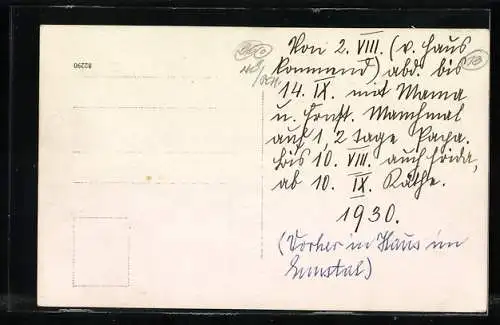 Von 2. VIII. (v. Haus
kommend) abd. bis
14. IX. mit Mama
u. Ernst. Manchmal
auf 1, 2 Tage Papa.
Bis 10. VIII. auch Frida,
ab 10. IX. Käthe.
1930.
(Vorher in Haus im
Ennstal.)
82290